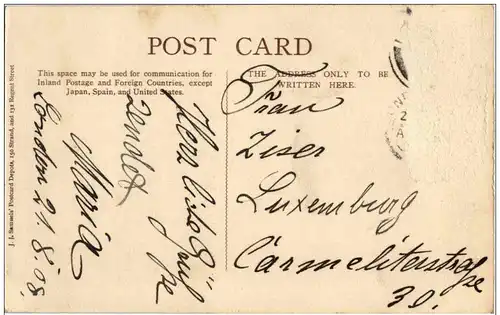 POST CARD
This space may be used for communication for
Inland Postage and Foreign Countries, except
Japan, Spain, and United States.
THE ADDRESS ONLY TO BE
WRITTEN HERE.
J. J. Samuels' Postcard Depots, 150 Strand, and 131 Regent Street
London 21.8.08.
Herzliche Grüße
sendet
Maria
Frau
Ziser
Luxemburg
Carmeliterstraße
30.